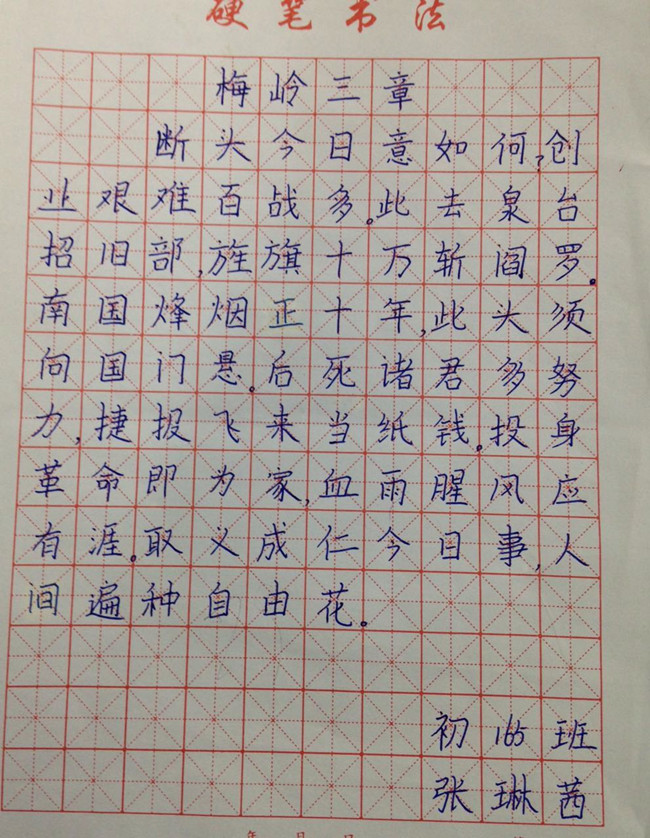 硬笔书法
梅岭三章
断头今日意如何,创
业艰难百战多。此去泉台
招旧部,旌旗十万斩阎罗。
南国烽烟正十年,此头须
向国门悬。后死诸君多努
力,捷报飞来当纸钱。投身
革命即为家,血雨腥风应
有涯。取义成仁今日事,人
间遍种自由花。
初165班
张琳茜
年 月 日